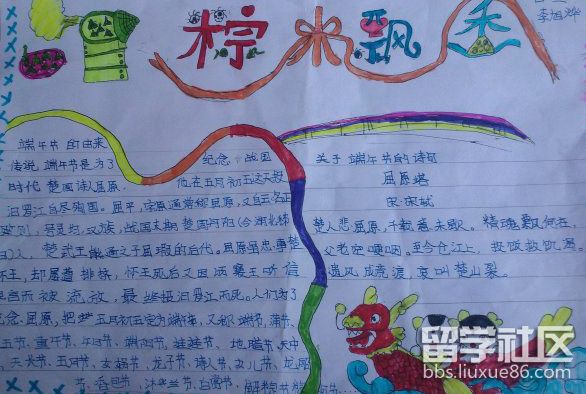 柠米飘香
李旭烨
端午节的由来
传说端午节是为了纪念战国
时代楚国诗人屈原,他在五月初五这天投
汨罗江自尽殉国。屈平,字原通常称屈原,又自云名正
则,号灵均,汉族,战国末期楚国丹阳(今湖北秭
归)人,楚武王熊通之子屈瑕的后代。屈原虽忠事楚
怀王,却屡遭排挤,怀王死后又因顷襄王听信
谗言而被流放,最终投汨罗江而死。人们为了
纪念屈原,把五月初五定为端午节,又称端节、蒲节、
天长节、五月节、女娲节、龙子节、诗人节、女儿节、龙
节、香包节、沐兰节、白赏节、解粽节
关于端午节的诗句
屈原塔
宋·宋斌
楚人悲屈原,千载意未歇。精魂飘何在,
父老空哽咽。至今仓江上,投饭救饥渴。
遗风成竞渡,哀叫楚山裂。
留学社区
bbs.liuxue86.com